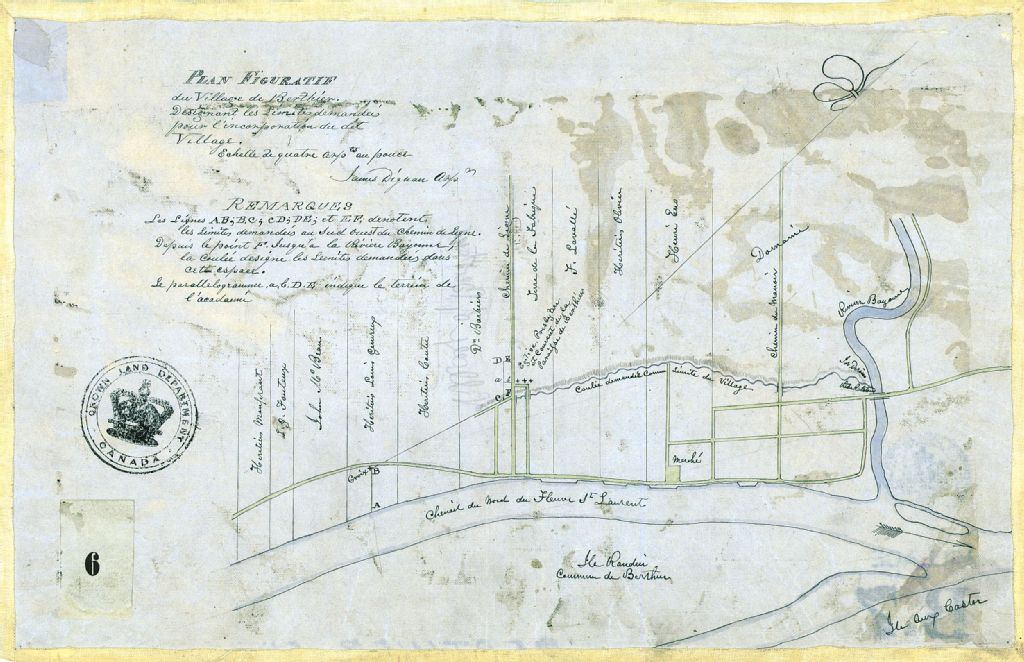 PLAN FIGURATIF
du Village de Berthier.
Désignant les Limites demandées
pour l'incorporation du dit
Village.
Echelle de quatre Arpts au pouce
James Dignan Arpr
REMARQUES
Les Lignes AB; BC; CD; DE; et E.F. denotent
les Limites demandées au Sud Ouest du Chemin de Ligne.
Depuis le point F. Jusqu'a la Rivière Bayonne,
la Coulée designe les Limites demandées dans
cet espace.
Le parallelogramme a. b. D. E. indique le terrein de
l'acadamie
Héritiers
John McBean
Héritiers Louis Généreux
Héritiers Coutu
Dr. Barbier
Chemin de Ligne
Terre de la Fabrique
F. Lavallé
Héritiers Olivier
Henri Eno
Domaine
Chemin du Manoir
Rivière Bayonne
Eglise Presbytère
et Couvent de la
Paroisse de Berthier
E
D
C
Coulée demandée Comme Limite du Village
Croix
B
A
Marché
Chenail du Nord du Fleuve St Laurent
Ile Randin
Commune de Berthier
Ile aux Castor
CROWN LAND DEPARTMENT
CANADA
6